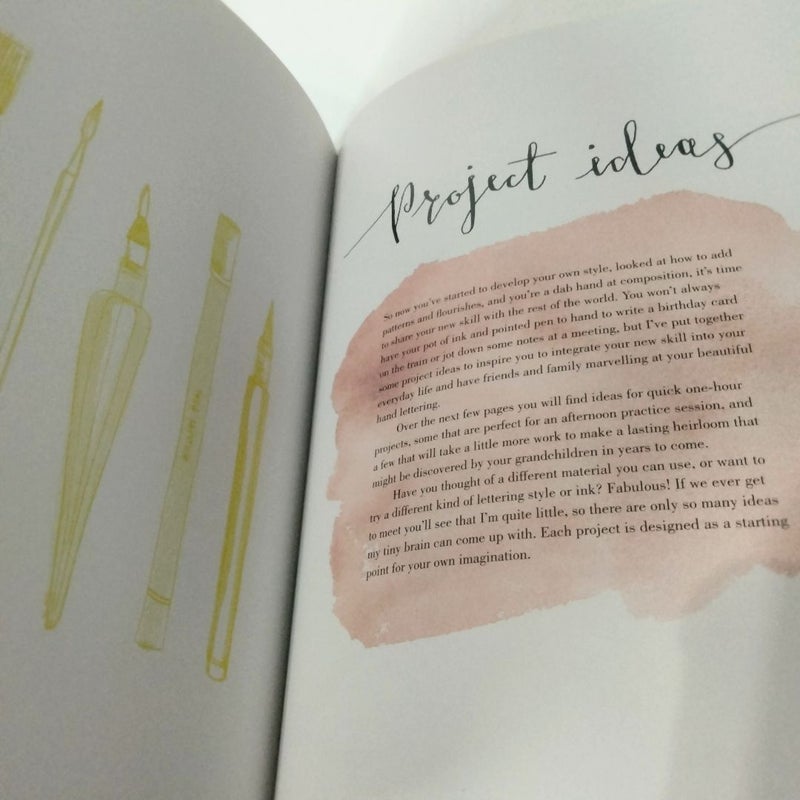 Project ideas
So now you've started to develop your own style, looked at how to add
patterns and flourishes, and you're a dab hand at composition, it's time
to share your new skill with the rest of the world. You won't always
have your pot of ink and pointed pen to hand to write a birthday card
on the train or jot down some notes at a meeting, but I've put together
some project ideas to inspire you to integrate your new skill into your
everyday life and have friends and family marvelling at your beautiful
hand lettering.
Over the next few pages you will find ideas for quick one-hour
projects, some that are perfect for an afternoon practice session, and
a few that will take a little more work to make a lasting heirloom that
might be discovered by your grandchildren in years to come.
Have you thought of a different material you can use, or want to
try a different kind of lettering style or ink? Fabulous! If we ever get
to meet you'll see that I'm quite little, so there are only so many ideas
my tiny brain can come up with. Each project is designed as a starting
point for your own imagination.